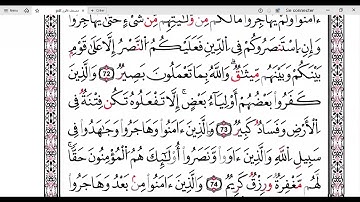 Se connecter
ءَامَنُوا۟ وَلَمْ يُهَاجِرُوا۟ مَا لَكُم مِّن وَلَٰيَتِهِم مِّن شَىْءٍ حَتَّىٰ يُهَاجِرُوا۟
وَإِنِ ٱسْتَنصَرُوكُمْ فِى ٱلدِّينِ فَعَلَيْكُمُ ٱلنَّصْرُ إِلَّا عَلَىٰ قَوْمٍ
بَيْنَكُمْ وَبَيْنَهُم مِّيثَٰقٌ وَٱللَّهُ بِمَا تَعْمَلُونَ بَصِيرٌ 72 وَٱلَّذِينَ
كَفَرُوا۟ بَعْضُهُمْ أَوْلِيَآءُ بَعْضٍ إِلَّا تَفْعَلُوهُ تَكُن فِتْنَةٌ فِى
ٱلْأَرْضِ وَفَسَادٌ كَبِيرٌ 73 وَٱلَّذِينَ ءَامَنُوا۟ وَهَاجَرُوا۟ وَجَٰهَدُوا۟ فِى
سَبِيلِ ٱللَّهِ وَٱلَّذِينَ ءَاوَوا۟ وَّنَصَرُوٓا۟ أُو۟لَٰٓئِكَ هُمُ ٱلْمُؤْمِنُونَ حَقًّا
لَّهُم مَّغْفِرَةٌ وَرِزْقٌ كَرِيمٌ 74 وَٱلَّذِينَ ءَامَنُوا۟ مِنۢ بَعْدُ وَهَاجَرُوا۟